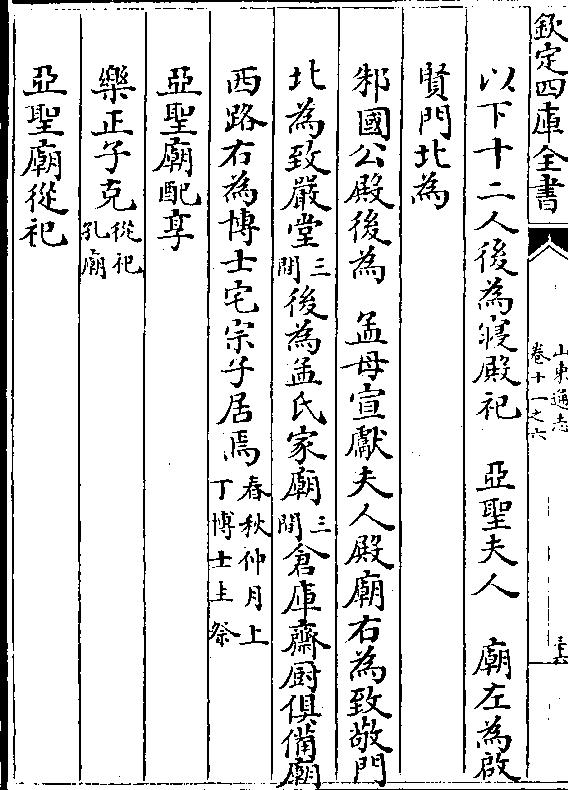 欽定四庫全書
山東通志
卷十一之六
以下十二人後為寢殿祀　亞聖夫人　廟左為啟
賢門北為
邾國公殿後為　孟母宣獻夫人殿廟右為致敬門
北為致嚴堂三間後為孟氏家廟三間倉庫齋厨俱備廟
西路右為博士宅宗子居焉春秋仲月上丁博士主祭
亞聖廟配享
樂正子克從祀孔廟
亞聖廟從祀